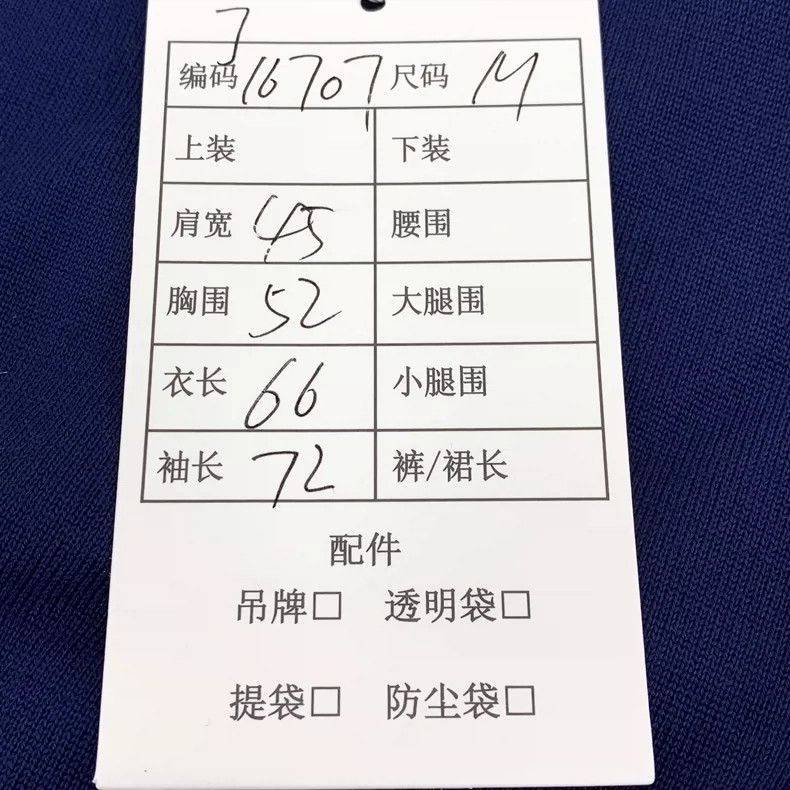 编码 16707 尺码 M
上装 下装
肩宽 45 腰围
胸围 52 大腿围
衣长 66 小腿围
袖长 72 裤/裙长
配件
吊牌□ 透明袋□
提袋□ 防尘袋□